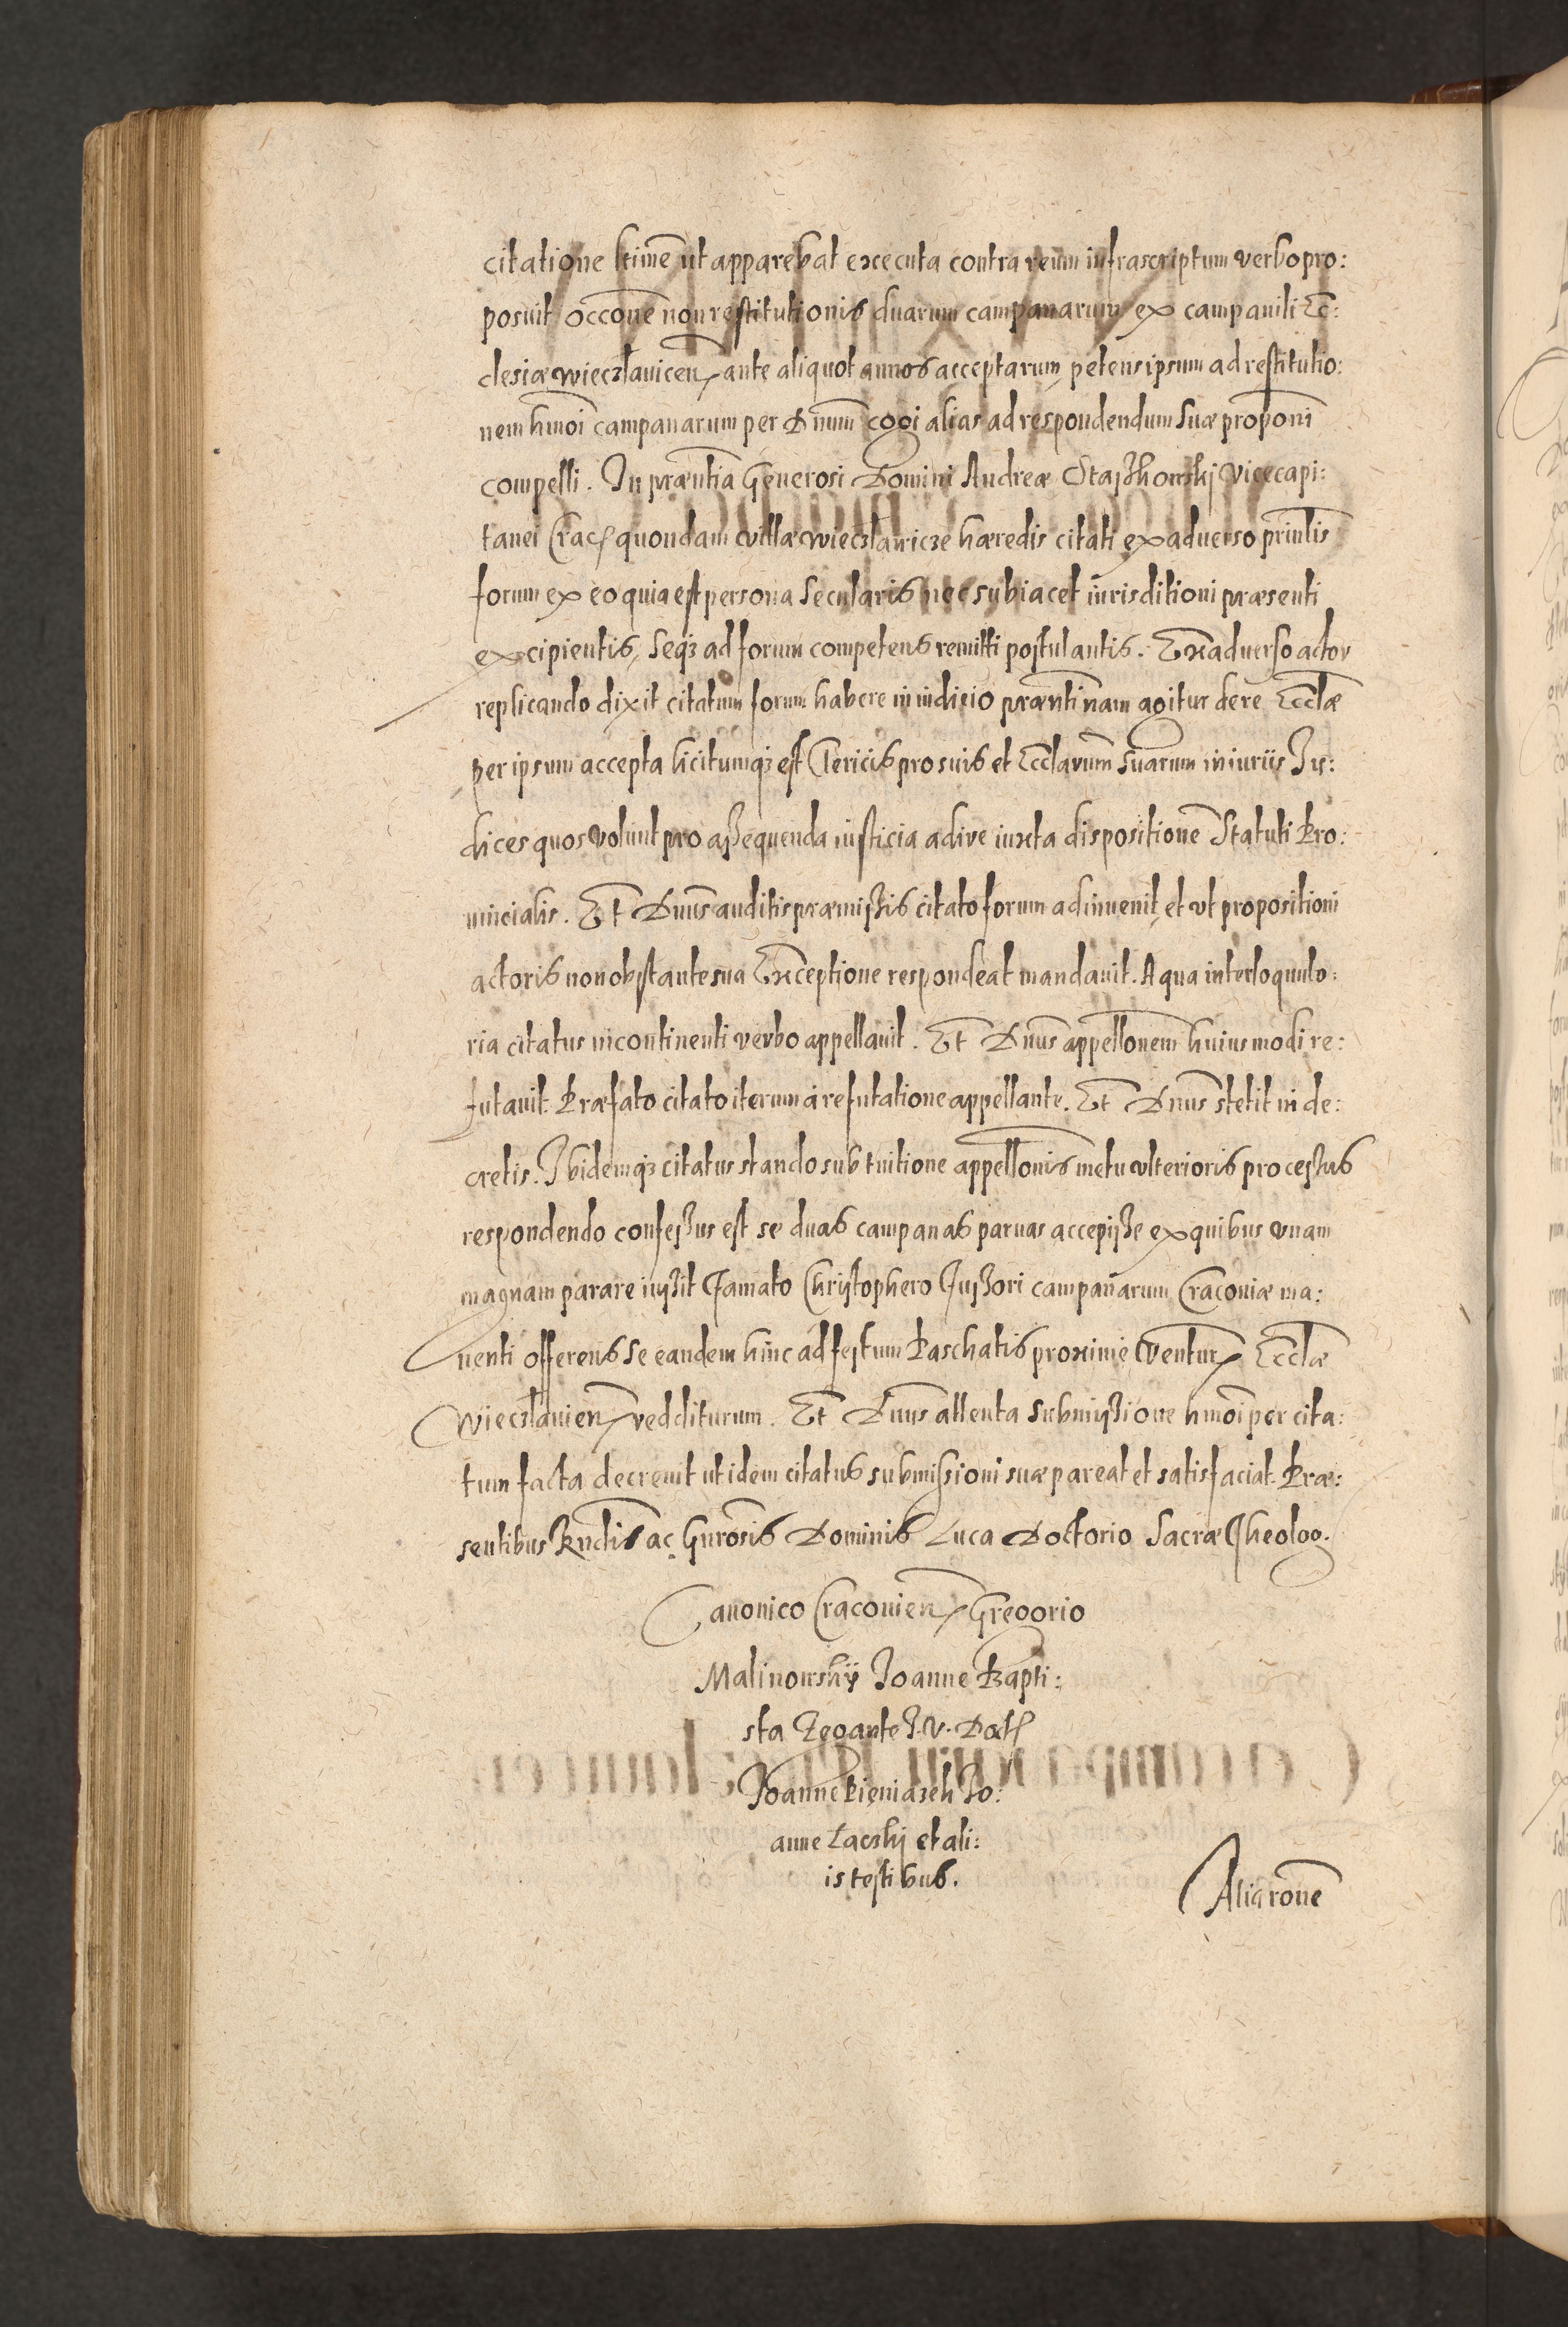 citatione ltime ut apparebat executa contra reum infrascriptum verbo pro:
posuit occone non restitutionis duarum campanarum ex campanili Ec:
clesiæ Wieczlavicen ante aliquot annos acceptarum petens ipsum ad restitutio:
nem hmoi campanarum per Dnum cogi alias ad respondendum suæ proponi
compelli. In præntia Generosi Domini Andreæ Staszkowskj Vicecapi:
tanei Crac quondam villæ Wieczlawicze hæredis citati ex adverso
forum ex eo quia est persona secularis nec subiacet iurisditioni præsenti
excipientis, seqz ad forum competens remitti postulantis. Ex adverso actor
replicando dixit citatum forum habere in iudicio prænti nam agitur de re Eccliæ
per ipsum accepta licitumqz est Clericis pro suis et Ecclarum suarum iniuriis Iu:
dices quos volunt pro assequenda iusticia adire iuxta dispositione Statuti Pro:
vincialis. Et Dnus auditis præmissis citato forum adinvenit, et ut propositioni
actoris non obstante sua Exceptione respondeat mandavit. A qua interloquuto:
ria citatus incontinenti verbo appellavit. Et Dnus appellonem huiusmodi re:
futavit. Præfato citato iterum a refutatione appellante. Et Dnus stetit in de:
cretis. Ibidemqz citatus stando sub tuitione appellonis metu ulterioris processus
respondendo confessus est se duas campanas parvas accepisse ex quibus unam
magnam parare iussit Famato Christophero Fussori campanarum Cracoviæ ma:
nenti offerens se eandem hinc ad festum Paschatis proxime Ventur Eccliæ
Wieczlavien redditurum. Et Dnus attenta submissione hmoi per cita:
tum facta decrevit ut idem citatus submissioni suæ pareat et satisfaciat. Præ:
sentibus Rndis ac Gnrosis Dominis Luca Doctorio Sacræ Theolog.
Canonico Cracovien Gregorio
Malinowskij Joanne Bapti:
sta Zegante J. V. Doct
Joanne Pieniazek Jo:
anne Lacskj et ali:
is testibus.
Alia rone